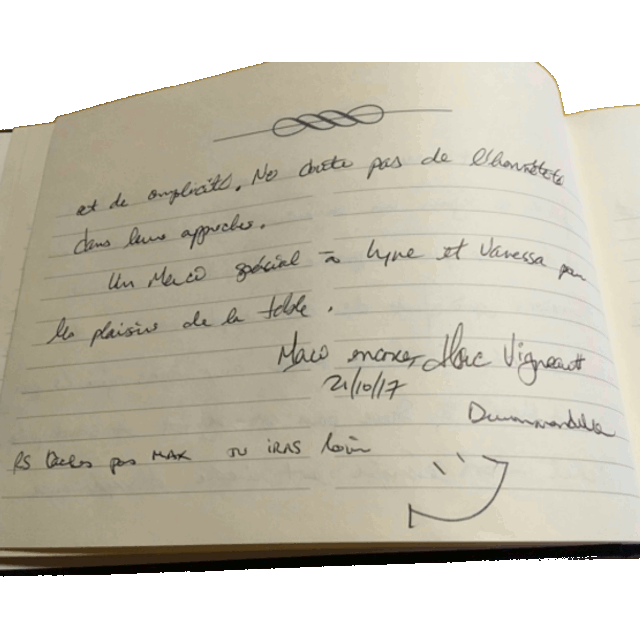 et de complicité. No doute pas de l'honnêteté
dans leurs approches.
Un Merci spécial à Lyne et Vanessa pour
les plaisirs de la table.
Merci encore, Marc Vigneault
21/10/17
Drummondville
PS Laches pas MAX TU IRAS loin